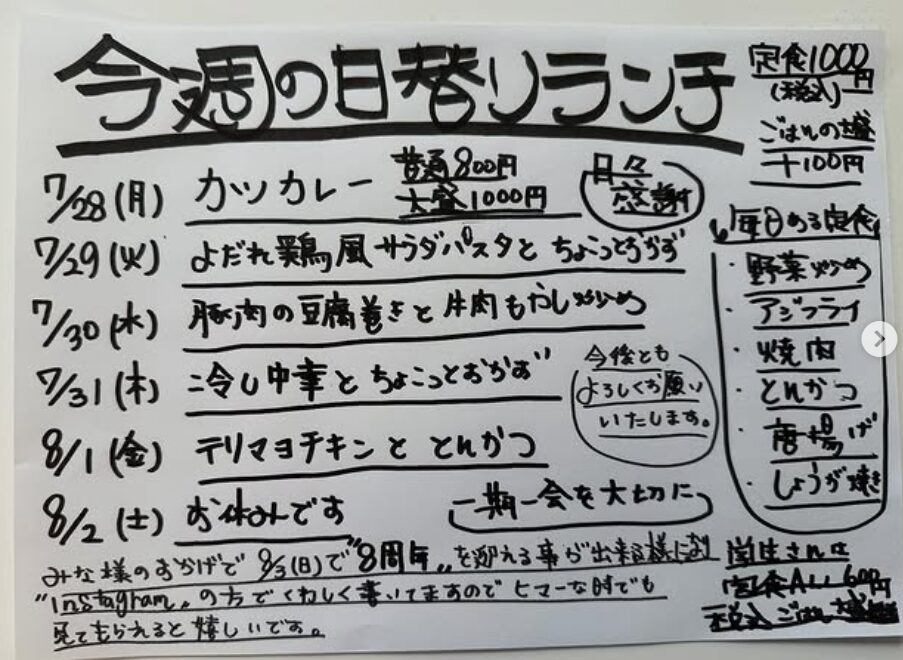 今週の日替りランチ
定食1000円
(税込)
ごはん大盛
+100円
7/28(月) カツカレー 普通800円
大盛1000円
日々
感謝
7/29(火) よだれ鶏風サラダパスタと ちょこっとおかず
7/30(水) 豚肉の豆腐巻きと牛肉もやし炒め
7/31(木) 冷し中華と ちょこっとおかず
8/1(金) テリマヨチキンと とんかつ
8/2(土) お休みです
今後とも
よろしくお願い
いたします。
一期一会を大切に
毎日ある定食
・野菜炒め
・アジフライ
・焼肉
・とんかつ
・唐揚げ
・しょうが焼き
みな様のおかげで 8/3(日)で"8周年"を迎える事が出来る様になり
"instagram"の方でくわしく書いてますので ヒマーな時でも
見てもらえると嬉しいです。
学生さんは
定食 600円
税込 ごはん大盛